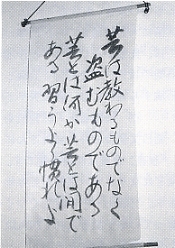 芸は教わるものでなく
盗むものである
芸とは何か芸とは間で
ある 習うより慣れよ